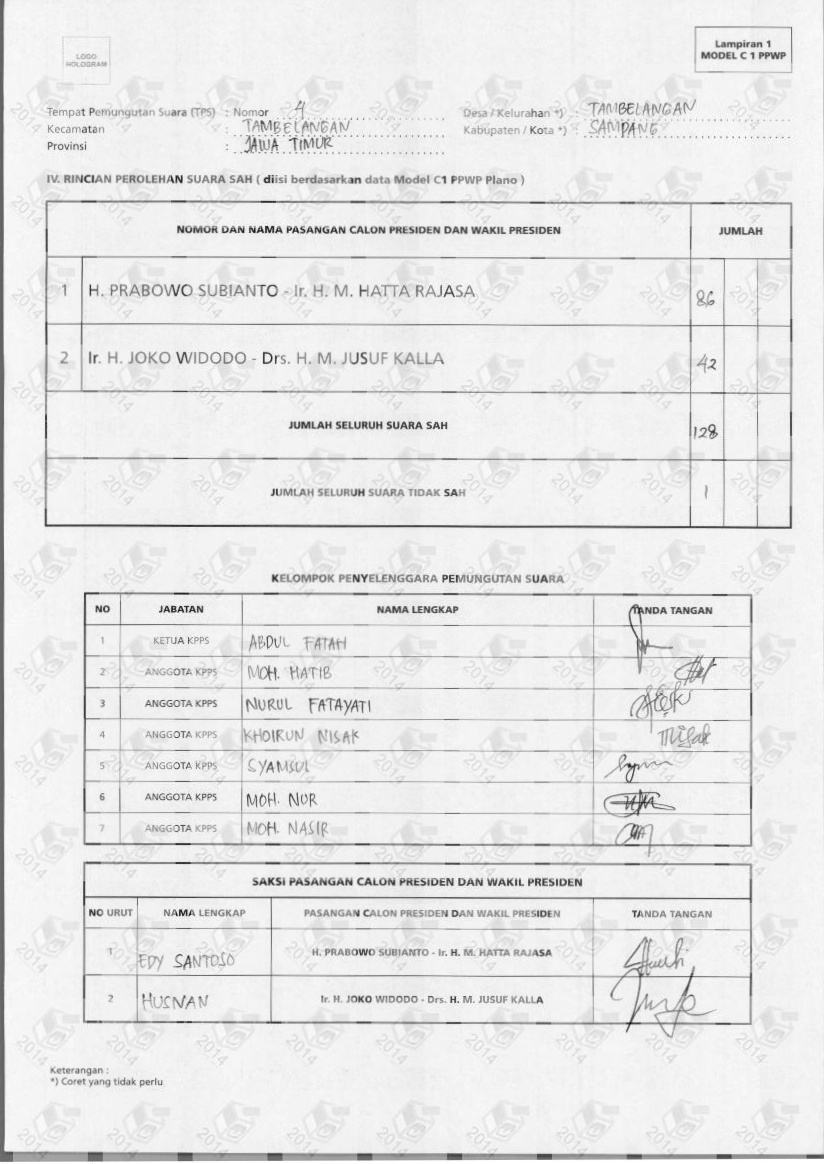 LOGO
HOLOGRAM
Lampiran 1
MODEL C 1 PPWP
Tempat Pemungutan Suara (TPS) : Nomor 4
Desa / Kelurahan *) : TAMBELANGAN
Kecamatan : TAMBELANGAN
Kabupaten / Kota *) : SAMPANG
Provinsi : JAWA TIMUR
IV. RINCIAN PEROLEHAN SUARA SAH ( diisi berdasarkan data Model C1 PPWP Plano )
NOMOR DAN NAMA PASANGAN CALON PRESIDEN DAN WAKIL PRESIDEN JUMLAH
1 H. PRABOWO SUBIANTO - Ir. H. M. HATTA RAJASA 86
2 Ir. H. JOKO WIDODO - Drs. H. M. JUSUF KALLA 42
JUMLAH SELURUH SUARA SAH 128
JUMLAH SELURUH SUARA TIDAK SAH 1
KELOMPOK PENYELENGGARA PEMUNGUTAN SUARA
NO JABATAN NAMA LENGKAP TANDA TANGAN
1 KETUA KPPS ABDUL FATAH
2 ANGGOTA KPPS MOH. HATIB
3 ANGGOTA KPPS NURUL FATAYATI
4 ANGGOTA KPPS KHOIRUN NISAK
5 ANGGOTA KPPS SYAMSUL
6 ANGGOTA KPPS MOH. NUR
7 ANGGOTA KPPS MOH. NASIR
SAKSI PASANGAN CALON PRESIDEN DAN WAKIL PRESIDEN
NO URUT NAMA LENGKAP PASANGAN CALON PRESIDEN DAN WAKIL PRESIDEN TANDA TANGAN
1 EDY SANTOSO H. PRABOWO SUBIANTO - Ir. H. M. HATTA RAJASA
2 HUSNAN Ir. H. JOKO WIDODO - Drs. H. M. JUSUF KALLA
Keterangan :
*) Coret yang tidak perlu